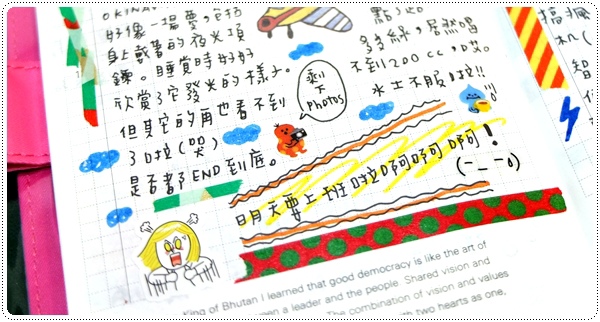 OKINA
好像一場夢,它拍
身上戴著的夜光項
鍊。睡覺時好好
欣賞了它發光的樣子。
但其它的再也看不到
了啦(哭)
是否都了END到底。
剩
下
photos
多多綠,居然喝
不到1200cc,哎。
水土不服啦!!
搞瘋
机(
智
明天要上班啦啊啊啊啊!
(-_-o)
King of Bhutan I learned that good democracy is like the art of
een a leader and the people. Shared vision and
The combination of vision and values
with two hearts as one.